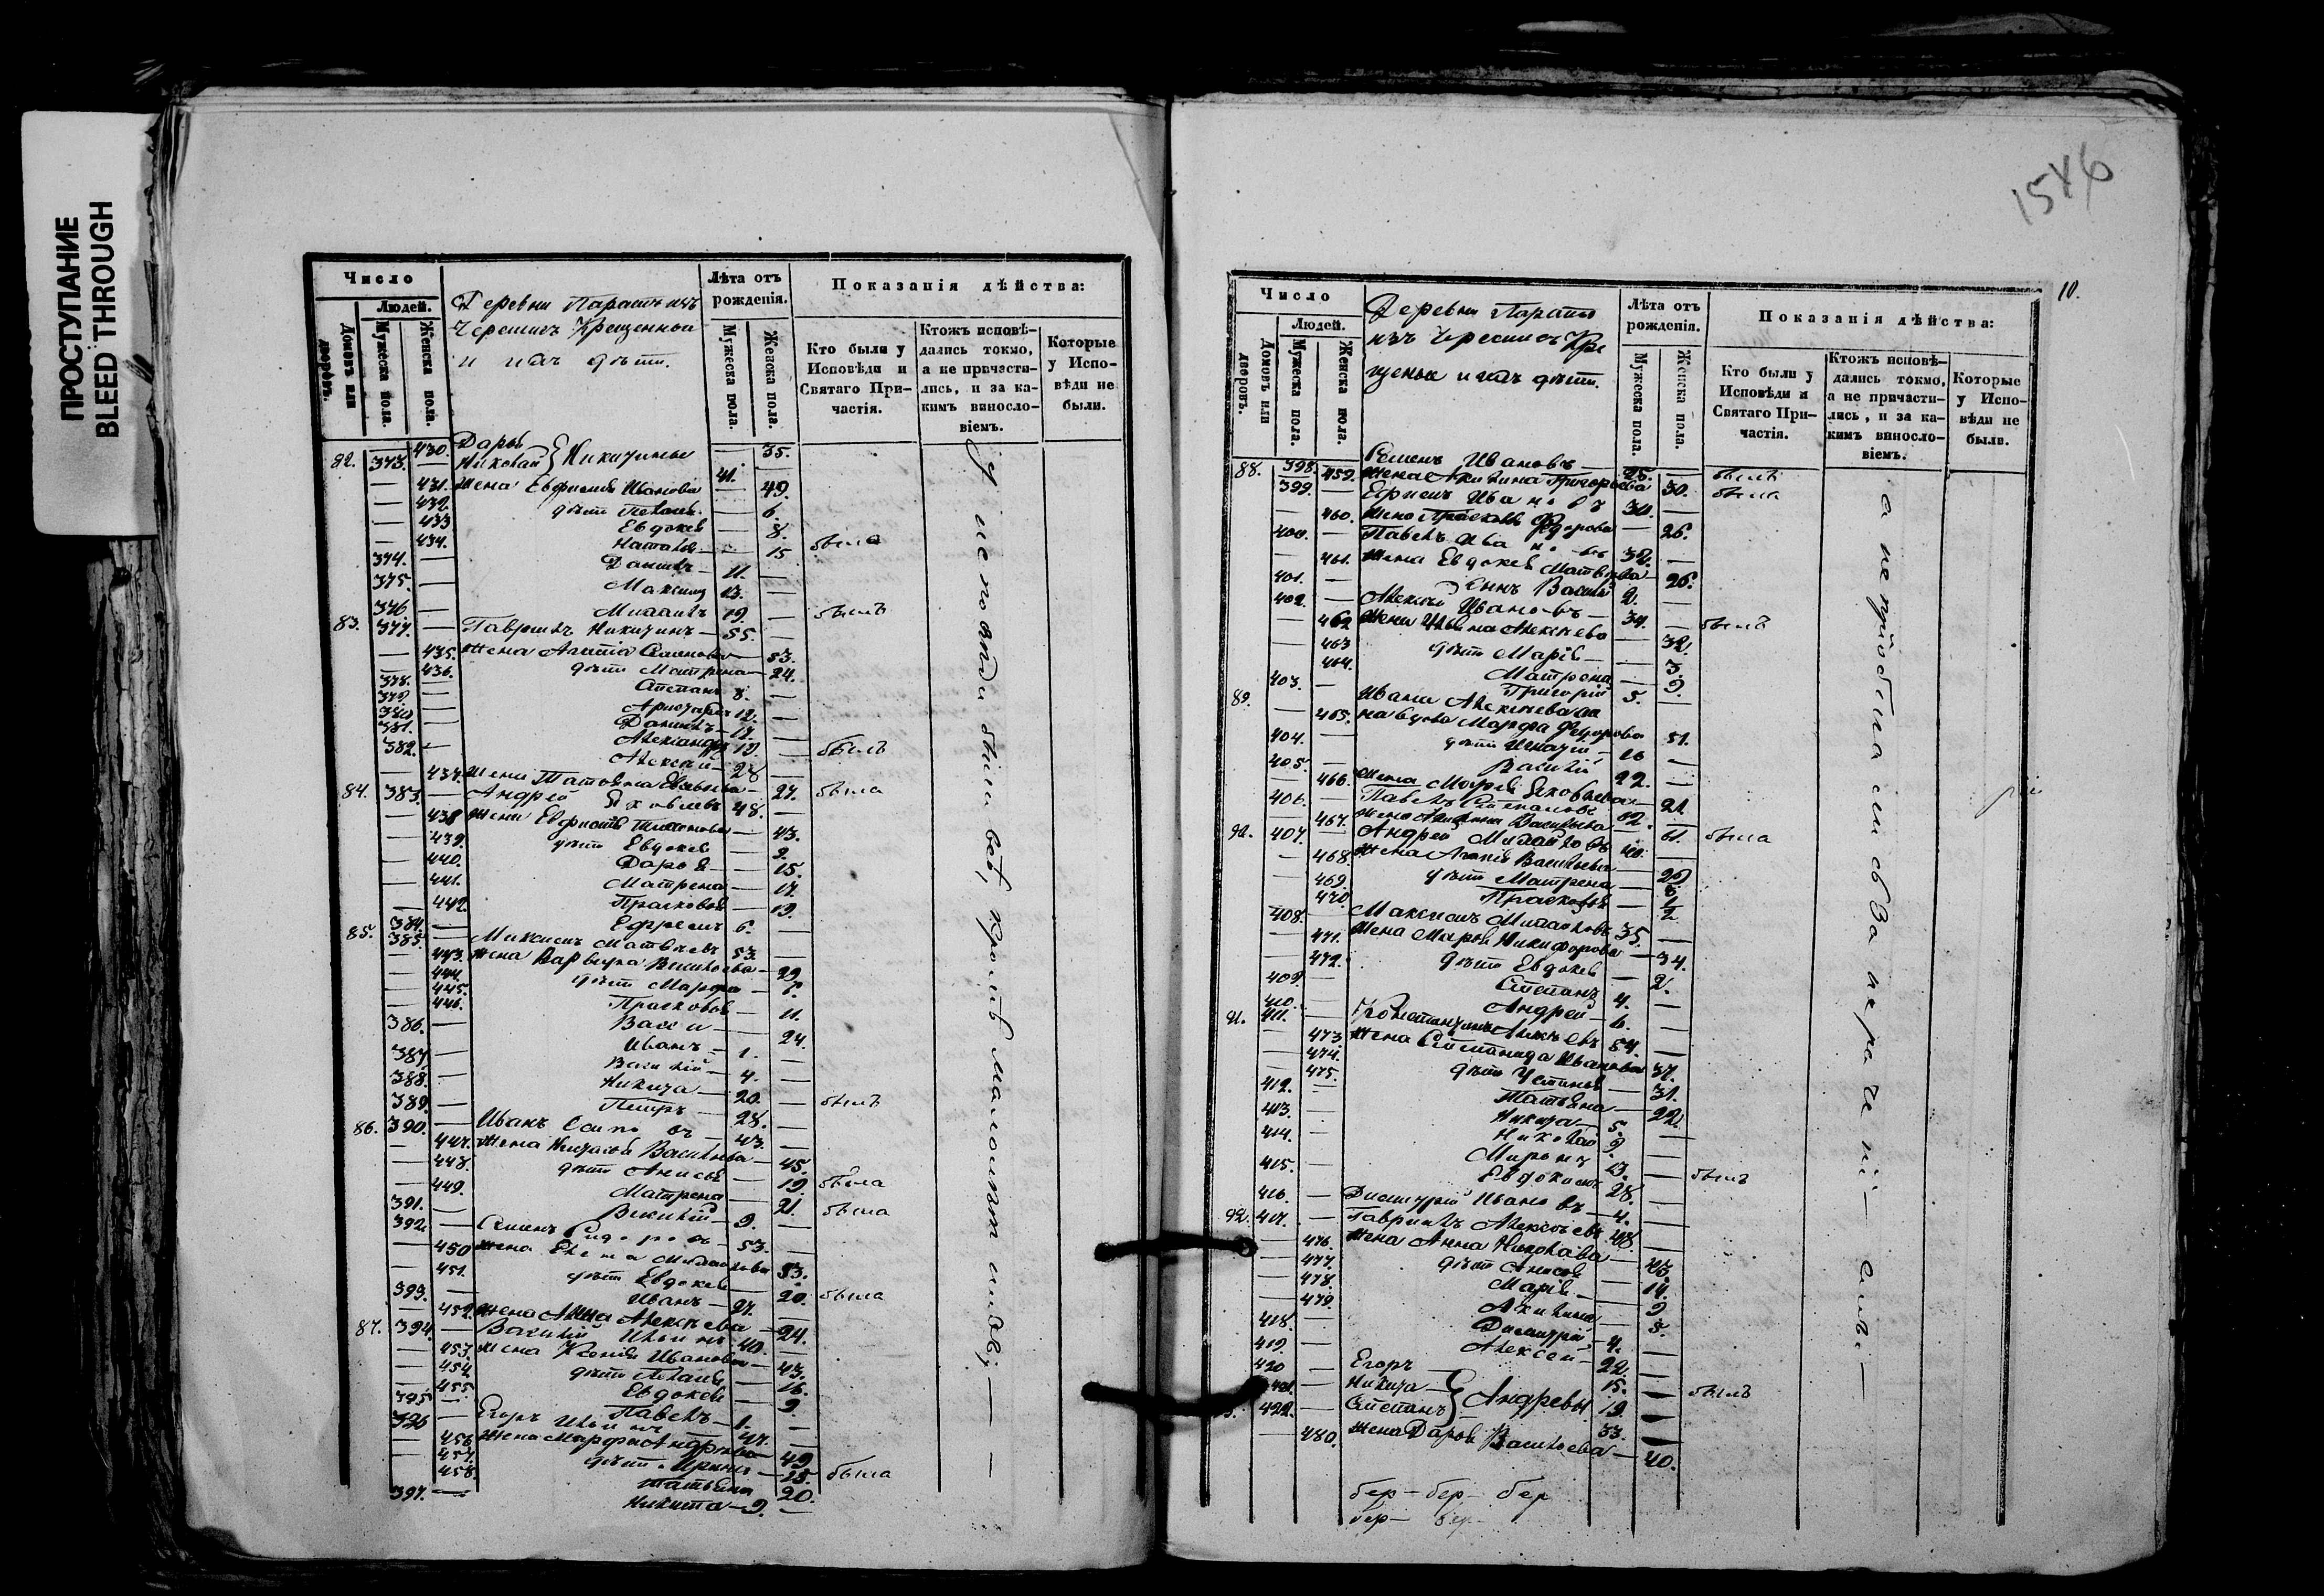 ПРОСТУПАНИЕ
BLEED THROUGH
Число
Людей.
Домовъ или дворовъ.
Мужеска пола.
Женска пола.
Деревни
Черемисъ Крещенные
и ихъ дѣти.
Лѣта отъ рожденія.
Мужеска пола.
Женска пола.
Показанія дѣйства:
Кто были у Исповѣди и Святаго Причастія.
Ктожъ исповѣдались токмо, а не причастились, и за какимъ винословіемъ.
Которые у Исповѣди не были.
430. Дарья 35.
82. 373. Николай } Никитины 41.
431. Жена Евфимія Иванова 49.
432. дѣти 6.
433 Евдокея 8.
434. Наталья 15 была
374. Данилъ 11.
375. Максимъ 13.
376. Михаилъ 19. былъ
83. 377. Гаврилъ Никитинъ 55.
435. Жена Семенова 53.
436. дѣти Матрена 24.
378. Степанъ 8.
379. 12.
380. Данилъ 17.
381. Александръ 19. былъ
382. Алексѣй 28
437. Жена Татьяна 27. была
84. 383. Андрей Яковлевъ 48.
438 Жена 43.
439. дѣти Евдокея 9.
440. Дарья 15.
441. Матрена 17.
442. Прасковья 19.
384. Ефремъ 6.
85. 385. Максимъ Матвѣевъ 53.
443. Жена Варвара Васильева 29.
444. дѣти Марфа
445. Прасковья 11.
446. 24.
386. Иванъ 1.
387. Василій 4.
388. Никита 20. былъ
389. Петръ 28.
86. 390. Иванъ Осиповъ 43.
447. Жена Васильева 45.
448. дѣти Анисья 19. была
449. Матрена 21. была
391. Василій 9.
392. Семенъ Сидоровъ 53.
450 Жена Елена Михайлова 53.
451. дѣти Евдокея 20. была
393. Иванъ 27.
452. Жена Анна Алексѣева 24.
87. 394. Василій Ильинъ 40.
453. Жена Ксенія Иванова 43.
454. дѣти 16.
455. Евдокея 9.
395 Павелъ 1.
396 Егоръ Ильинъ 47.
456 Жена Марфа Андреева 49.
457. дѣти Ирина 15. была
458. Татьяна 20.
397. Никита 9.
у исповѣди были всѣ, кромѣ малолѣтнихъ
1546
10.
Число
Людей.
Домовъ или дворовъ.
Мужеска пола.
Женска пола.
Деревни
изъ Черемисъ Кре
щеные и ихъ дѣти.
Лѣта отъ рожденія.
Мужеска пола.
Женска пола.
Показанія дѣйства:
Кто были у Исповѣди и Святаго Причастія.
Ктожъ исповѣдались токмо, а не причастились, и за какимъ винословіемъ.
Которые у Исповѣди не были.
88. 398. Семенъ Ивановъ 25. былъ
459. Жена Акилина Григорьева 30. была
399. Ефремъ Ивановъ 30.
460. Жена Прасковья Федорова 26.
400. Павелъ Ивановъ 32.
461. Жена Евдокея Матвѣева 26.
401. сынъ Василій 2.
402. Алексѣй Ивановъ 34. былъ
462 Жена Алексѣева 32.
463 дѣти Марія 3.
464. Матрона 9.
403. Григорій 5.
89. Ивана Алексѣева
465. вдова Марфа Федорова 51.
404. дѣти Игнатій 16
405. Василій 22.
466. Жена Марья Яковлева 21
406. Павелъ Степановъ 62.
467. Жена Васильева 61. была
90. 407. Андрей Михайловъ 40.
468. Жена Васильева 26
469. дѣти Матрена 6.
470. Прасковья 1/2
408. Максимъ Михайловъ 35.
471. Жена Марья Никифорова 34.
472. дѣти Евдокея 2.
409. Степанъ 4.
410. Андрей 6.
91. 411. Константинъ 54.
473. Жена Степанида Иванова 37.
474. дѣти Устинья 31.
475. Татьяна 22.
412. Никита 5.
413. Николай 9.
414. Миронъ 13. былъ
415. Евдокимъ 28.
416. Дмитрій Ивановъ 4.
92. 417. Гаврилъ Алексѣевъ 48.
476. Жена Анна Николаева 43.
477. дѣти Анисья 14.
478. Марія 9
479. Акилина 5.
418. Дмитрій 4.
419. Алексѣй 22.
420 Егоръ 15. былъ
421. Никита } Андреевы 19.
422. Степанъ 33.
480. Жена Дарья Васильева 40.
а не пріобщались
бер- бер- бер
бер- бер-